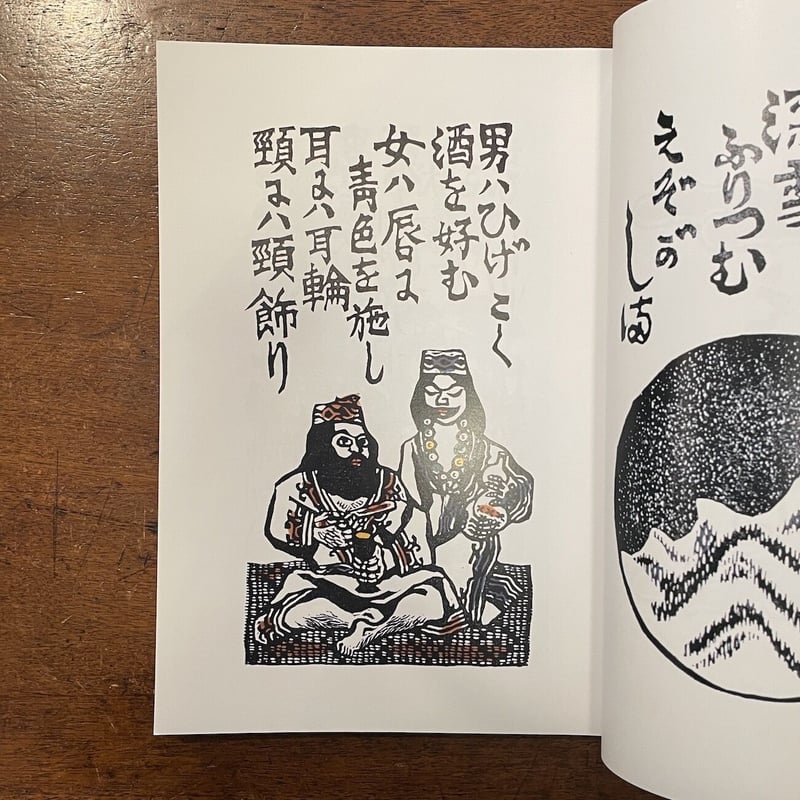 深雪
ふりつむ
えぞがしま
男ハひげこく
酒を好む
女ハ唇に
青色を施し
耳にハ耳輪
頸にハ頸飾り